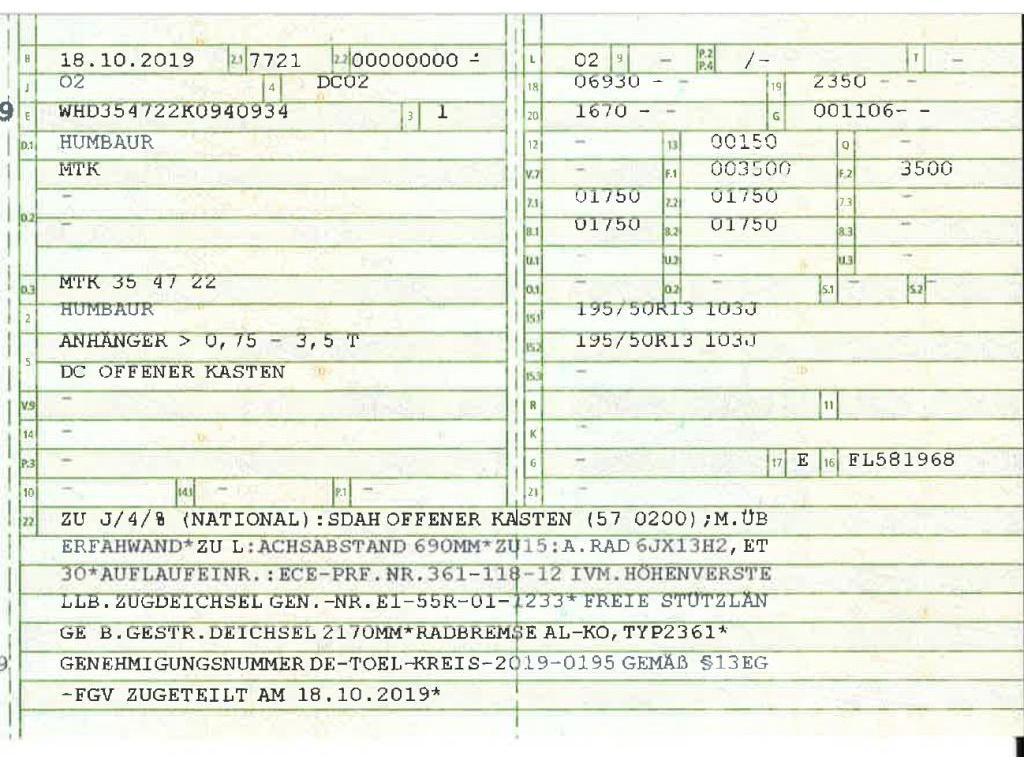 B 18.10.2019 2.1 7721 2.2 00000000 -
J 02 4 DC02
9 E WHD354722K0940934 3 1
D.1 HUMBAUR
MTK
-
D.2 -
D.3 MTK 35 47 22
2 HUMBAUR
ANHÄNGER > 0,75 - 3,5 T
5 DC OFFENER KASTEN
V.9 -
14 -
P.3 -
10 - 14.1 - P.1 -
L 02 9 - P.2 P.4 /- T -
18 06930 - - 19 2350 - -
20 1670 - - G 001106- -
12 - 13 00150 Q -
V.7 - F.1 003500 F.2 3500
7.1 01750 7.2 01750 7.3 -
8.1 01750 8.2 01750 8.3 -
U.1 - U.2 - U.3 -
O.1 - O.2 - S.1 - S.2 -
15.1 195/50R13 103J
15.2 195/50R13 103J
15.3 -
R 11
K -
6 - 17 E 16 FL581968
21 -
22 ZU J/4/ (NATIONAL):SDAH OFFENER KASTEN (57 0200);M.ÜB
ERFAHWAND*ZU L:ACHSABSTAND 690MM*ZU15:A.RAD 6JX13H2,ET
30*AUFLAUFEINR.:ECE-PRF.NR.361-118-12 IVM.HÖHENVERSTE
LLB.ZUGDEICHSEL GEN.-NR.E1-55R-01-1233* FREIE STÜTZLÄN
GE B.GESTR.DEICHSEL 2170MM*RADBREMSE AL-KO,TYP2361*
9 GENEHMIGUNGSNUMMER DE-TOEL-KREIS-2019-0195 GEMÄß §13EG
-FGV ZUGETEILT AM 18.10.2019*